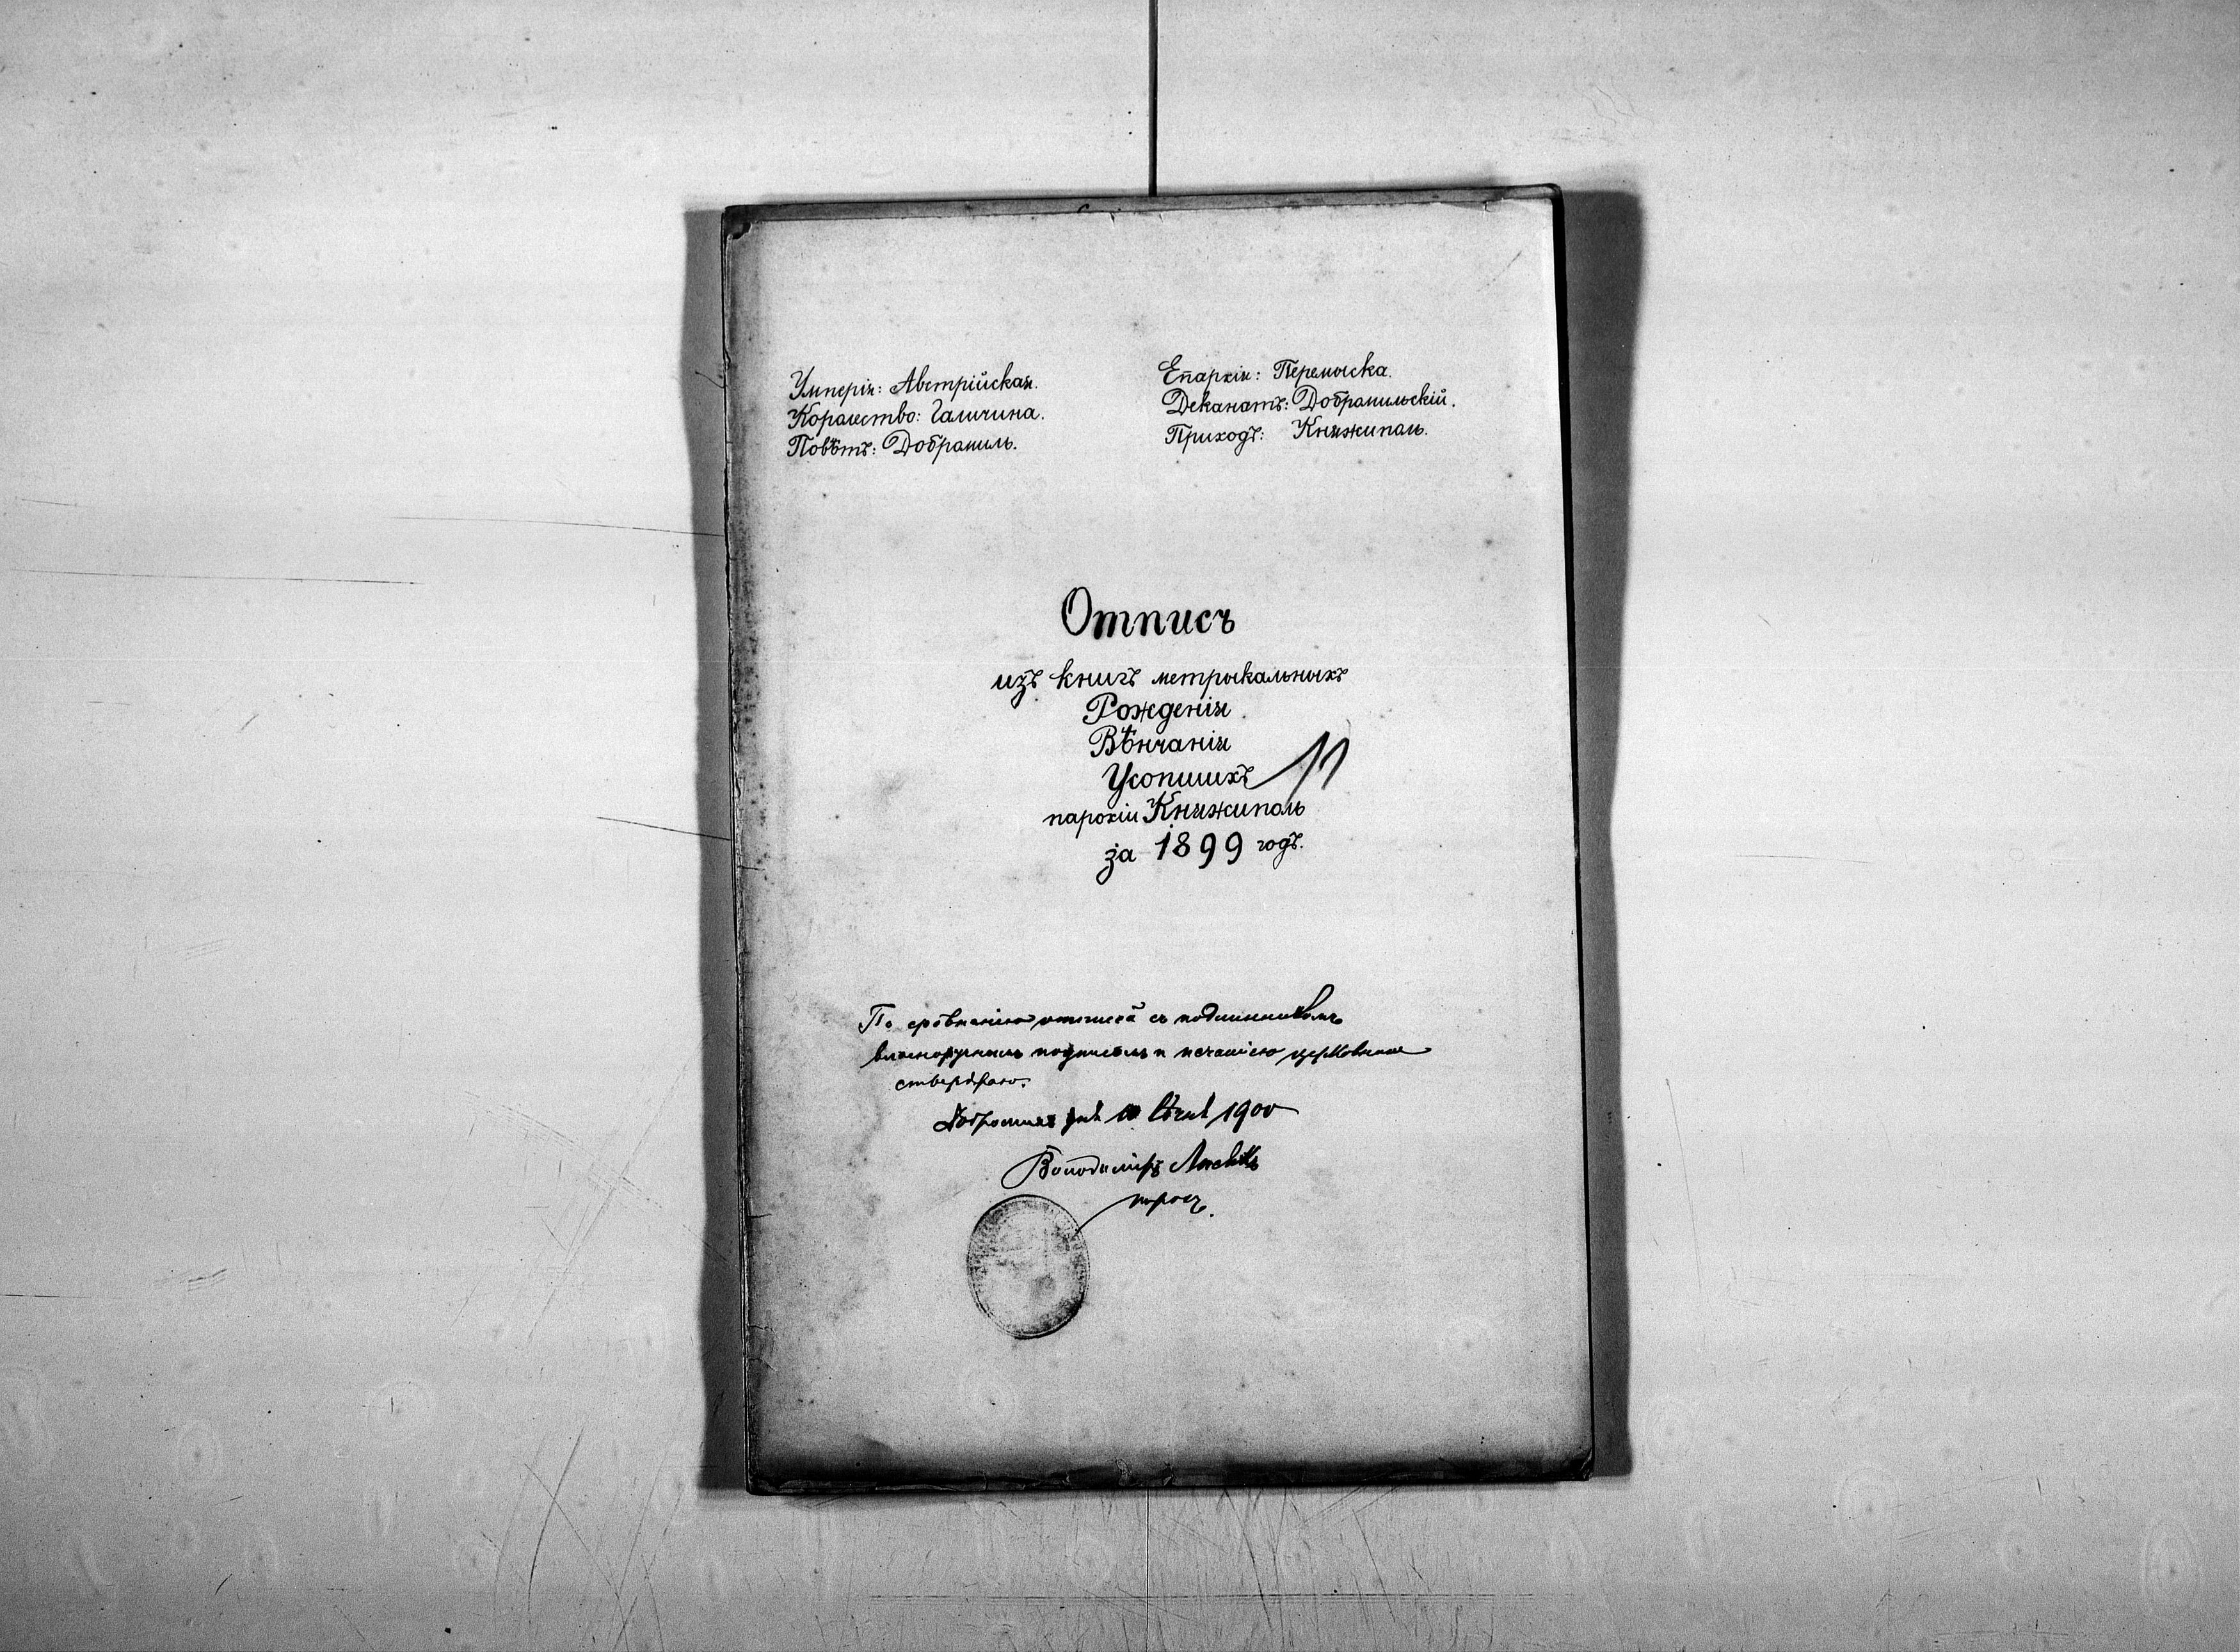 Имперія: Австрійская.
Королество: Галичина.
Повѣтъ: Добромиль.
Епархія: Перемыска.
Деканатъ: Добромильскій.
Приходъ: Княжиполь.
Отписъ
изъ книгъ метрыкальныхъ
Рожденія
Вѣнчанія
Усопшихъ 11
парохіи Княжиполь
за 1899 годъ.
По сровнанію отписа съ подлинникомъ
власноручнымъ подписомъ и печатію церковною
ствердраю.
Добромиль дня 10 Сѣчня 1900
Володимиръ
парохъ.